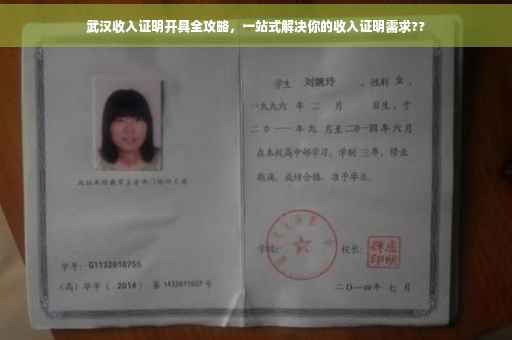 武汉收入证明开具全攻略，一站式解决你的收入证明需求??
学生 刘婉玲 ，性别 女 ，
一九九六 年 二 月 日生，于
二〇一一年九 月至二〇一四年六月
在本校高中部学习，学制 三年，修业
期满，成绩合格，准予毕业。
学校： 校长：
学号：G1132010755
(高) 毕字 ( 2014 ) 第 1432011027 号
二〇一四年 七 月